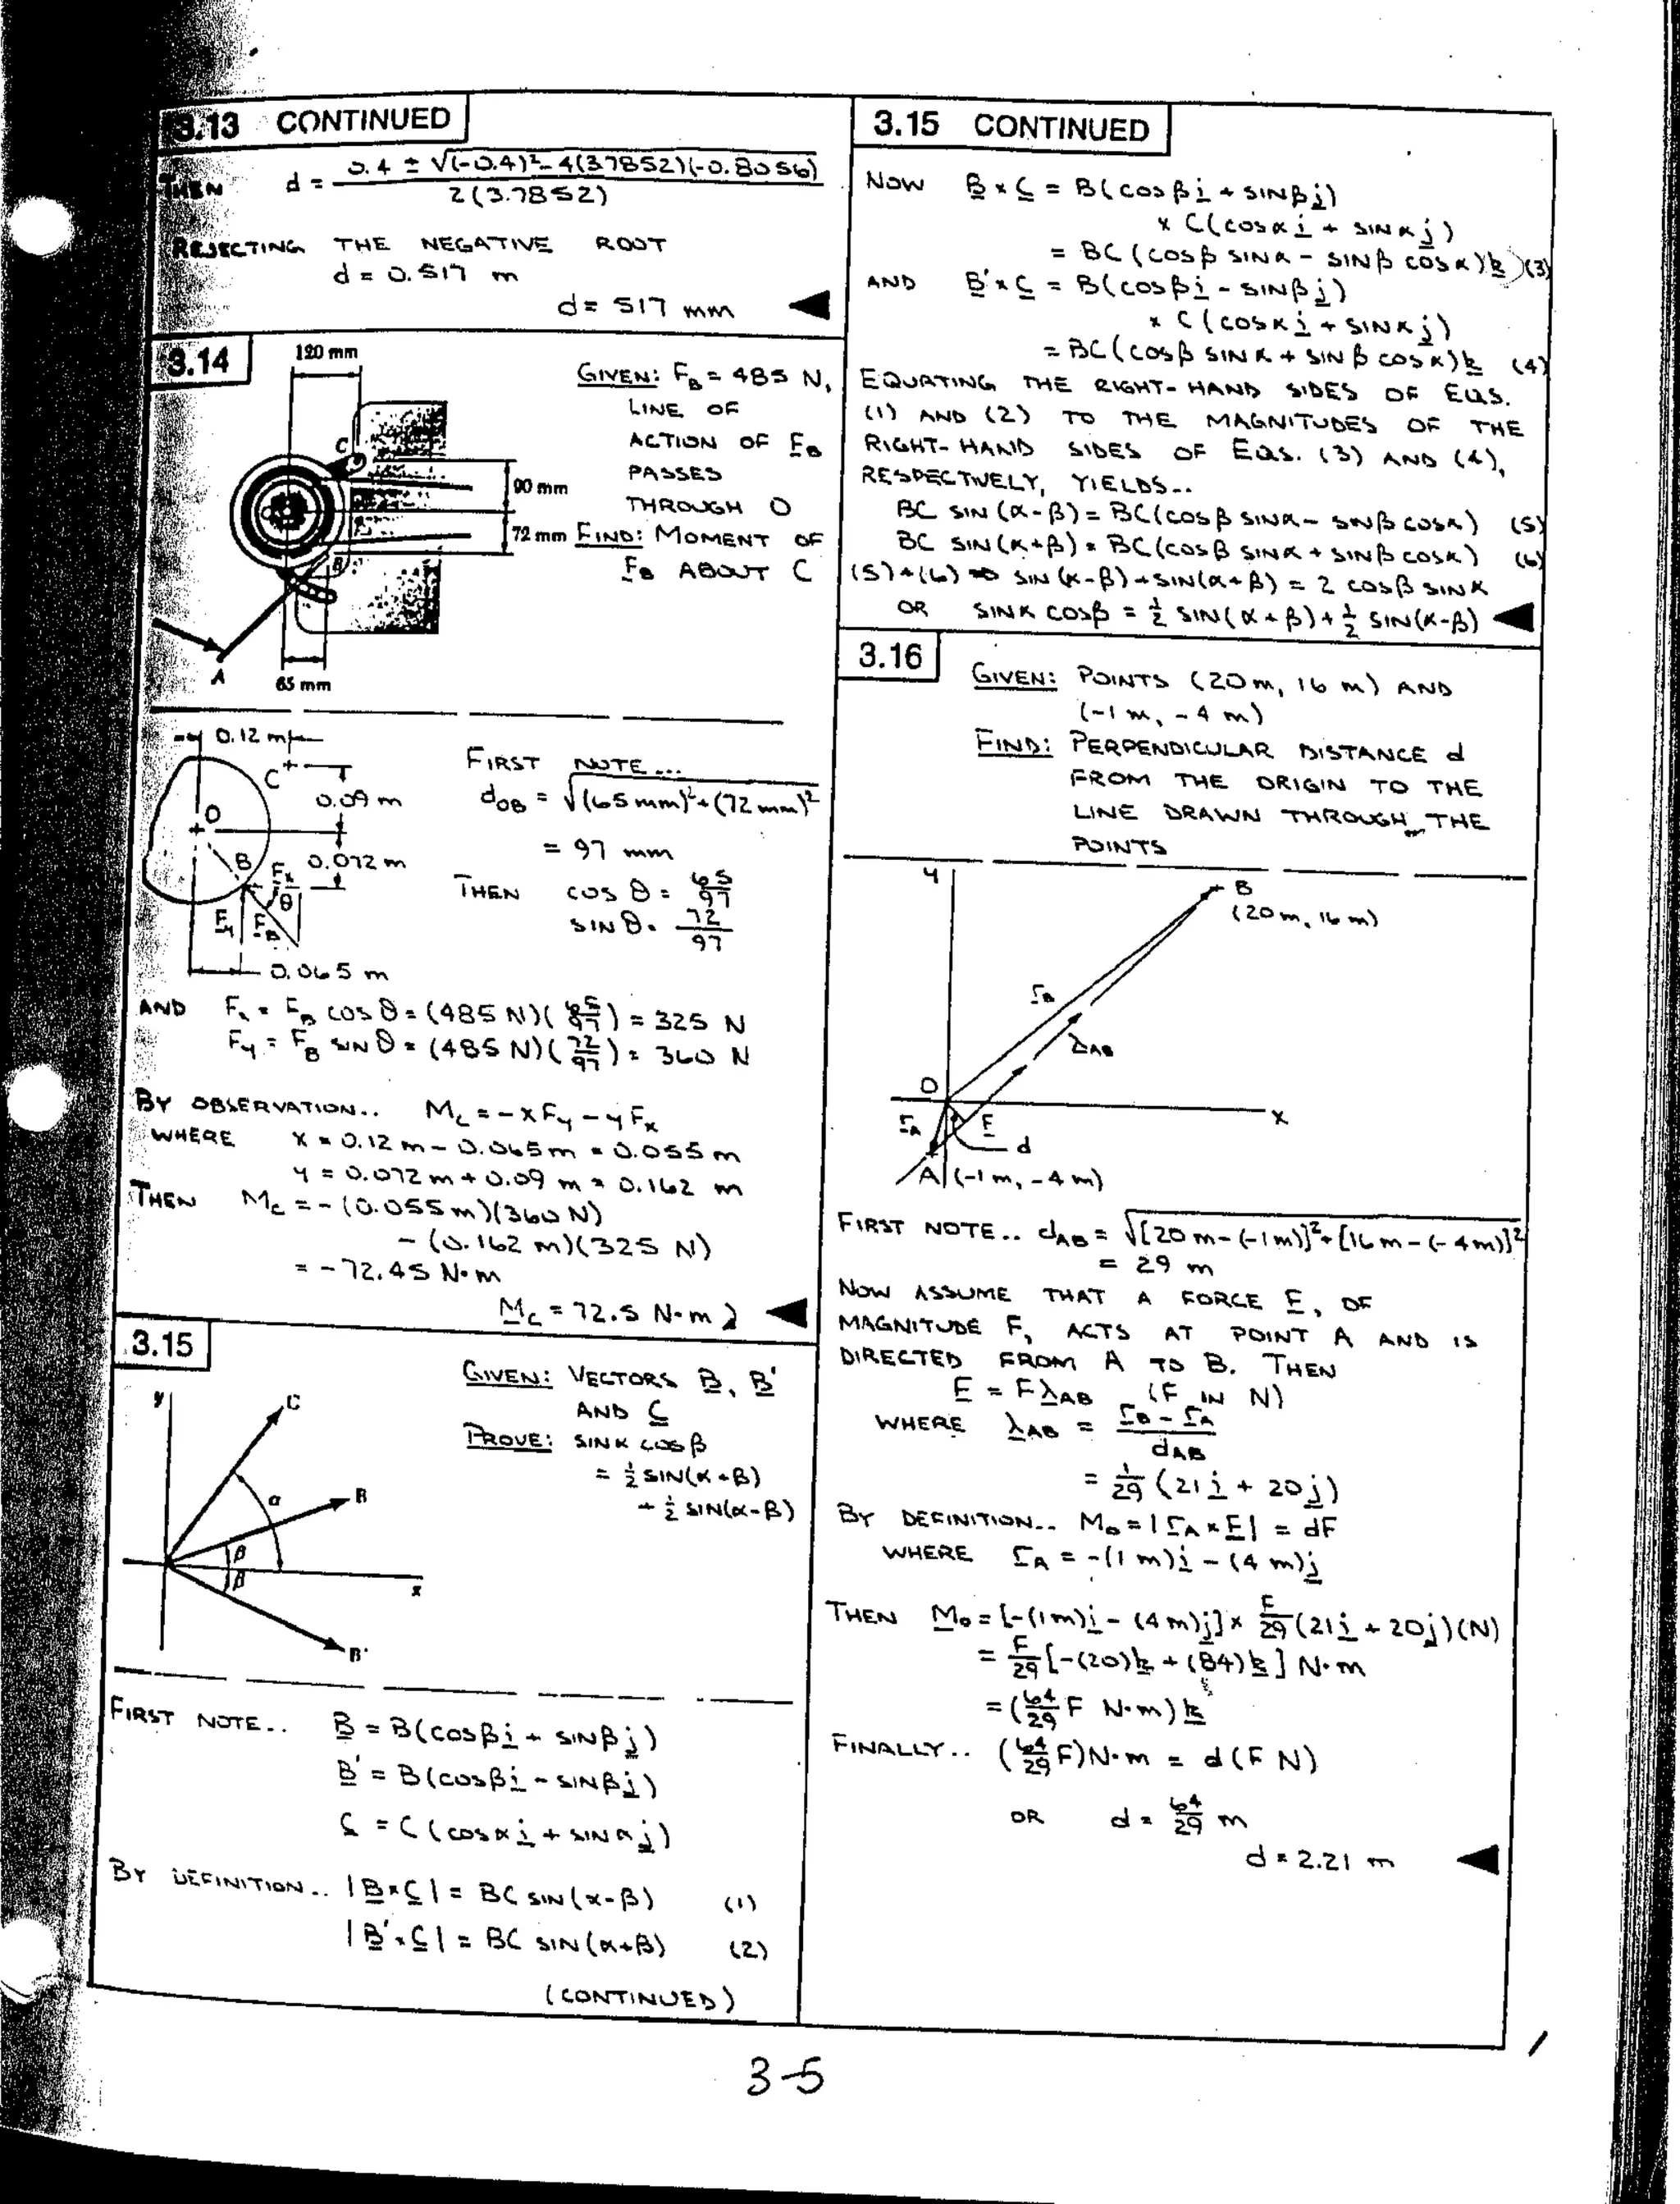 3.13 CONTINUED
THEN d = 0.4 ± √(-0.4)² - 4(3.7852)(-0.8056)
2(3.7852)
REJECTING THE NEGATIVE ROOT
d = 0.517 m
d = 517 mm ◄
3.14
120 mm
C
90 mm
72 mm
B
A
65 mm
GIVEN: F_B = 485 N,
LINE OF
ACTION OF F_B
PASSES
THROUGH O
FIND: MOMENT OF
F_B ABOUT C
0.12 m
C
0.09 m
O
B
0.072 m
F_x
θ
F_y
F_B
0.065 m
FIRST NOTE...
d_OB = √(65 mm)² + (72 mm)²
= 97 mm
THEN cos θ = 65/97
SIN θ = 72/97
AND F_x = F_B cos θ = (485 N)(65/97) = 325 N
F_y = F_B SIN θ = (485 N)(72/97) = 360 N
BY OBSERVATION.. M_C = -xF_y - yF_x
WHERE x = 0.12 m - 0.065 m = 0.055 m
y = 0.072 m + 0.09 m = 0.162 m
THEN M_C = -(0.055 m)(360 N)
- (0.162 m)(325 N)
= -72.45 N•m
M_C = 72.5 N•m ⤸ ◄
3.15
y
C
α
B
β
β
x
B'
GIVEN: VECTORS B, B'
AND C
PROVE: SINα COSβ
= ½ SIN(α+β)
+ ½ SIN(α-β)
FIRST NOTE.. B = B(cosβ i + SINβ j)
B' = B(cosβ i - SINβ j)
C = C(cosα i + SINα j)
BY DEFINITION.. |B×C| = BC SIN(α-β) (1)
|B'×C| = BC SIN(α+β) (2)
(CONTINUED)
3.15 CONTINUED
NOW B × C = B(cosβ i + SINβ j)
× C(cosα i + SINα j)
= BC(cosβ SINα - SINβ cosα)k (3)
AND B' × C = B(cosβ i - SINβ j)
× C(cosα i + SINα j)
= BC(cosβ SINα + SINβ cosα)k (4)
EQUATING THE RIGHT-HAND SIDES OF EQS.
(1) AND (2) TO THE MAGNITUDES OF THE
RIGHT-HAND SIDES OF EQS. (3) AND (4),
RESPECTIVELY, YIELDS..
BC SIN(α-β) = BC(cosβ SINα - SINβ cosα) (5)
BC SIN(α+β) = BC(cosβ SINα + SINβ cosα) (6)
(5)+(6) ⇒ SIN(α-β) + SIN(α+β) = 2 cosβ SINα
OR SINα cosβ = ½ SIN(α+β) + ½ SIN(α-β) ◄
3.16
GIVEN: POINTS (20 m, 16 m) AND
(-1 m, -4 m)
FIND: PERPENDICULAR DISTANCE d
FROM THE ORIGIN TO THE
LINE DRAWN THROUGH THE
POINTS
y
B
(20 m, 16 m)
r_B
λ_AB
O
x
r_A
F
d
A (-1 m, -4 m)
FIRST NOTE.. d_AB = √[20 m - (-1 m)]² + [16 m - (-4 m)]²
= 29 m
NOW ASSUME THAT A FORCE F, OF
MAGNITUDE F, ACTS AT POINT A AND IS
DIRECTED FROM A TO B. THEN
F = Fλ_AB (F IN N)
WHERE λ_AB = r_B - r_A
d_AB
= 1/29 (21 i + 20 j)
BY DEFINITION.. M_O = |r_A × F| = dF
WHERE r_A = -(1 m)i - (4 m)j
THEN M_O = [-(1 m)i - (4 m)j] × F/29 (21 i + 20 j)(N)
= F/29 [-(20)k + (84)k] N•m
= (64/29 F N•m)k
FINALLY.. (64/29 F)N•m = d(F N)
OR d = 64/29 m
d = 2.21 m ◄
3-5